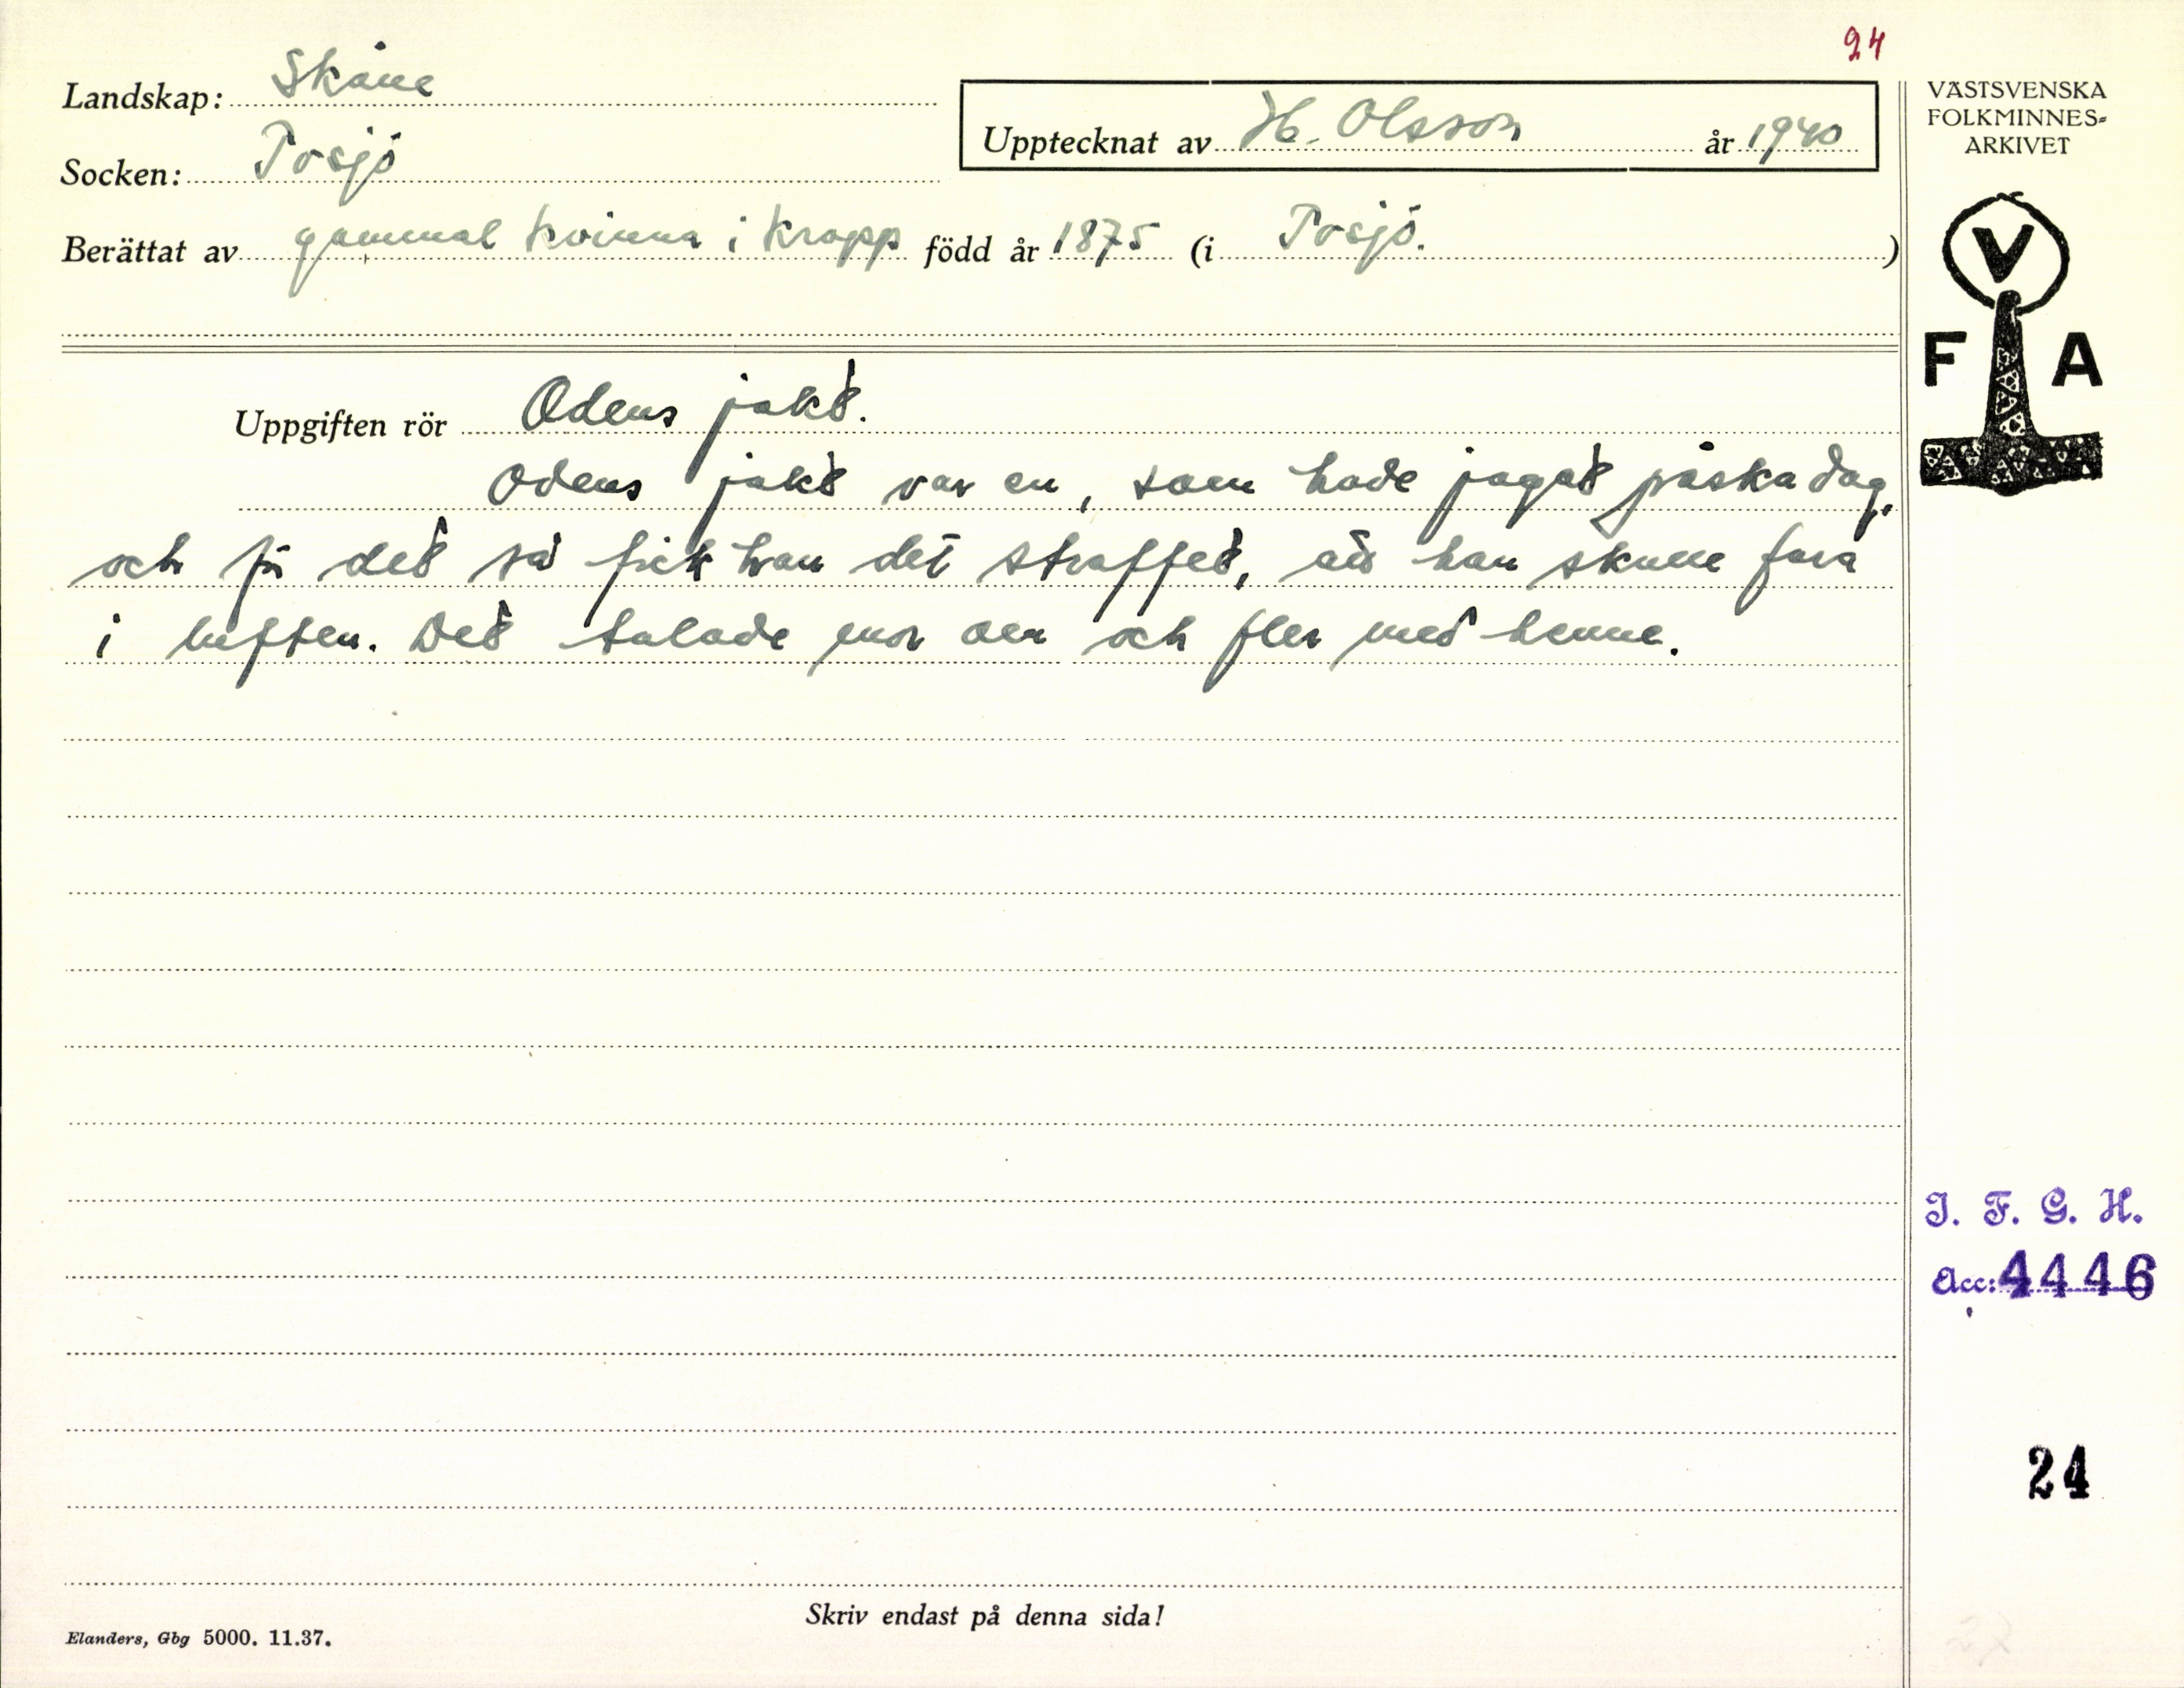 24
Landskap: Skåne
Socken: Tosjö
Upptecknat av H. Olsson år 1940
Berättat av gammal kvinna i Kropp född år 1875 (i Tosjö.)
VÄSTSVENSKA
FOLKMINNES-
ARKIVET
V
F A
Uppgiften rör Odens jakt.
Odens jakt var en, som hade jagat påskadag,
och för det så fick han det straffet, att han skulle fara
i luften. Det talade mor om och fler med henne.
I. F. G. H.
Acc: 4446
24
Skriv endast på denna sida!
Elanders, Gbg 5000. 11.37.